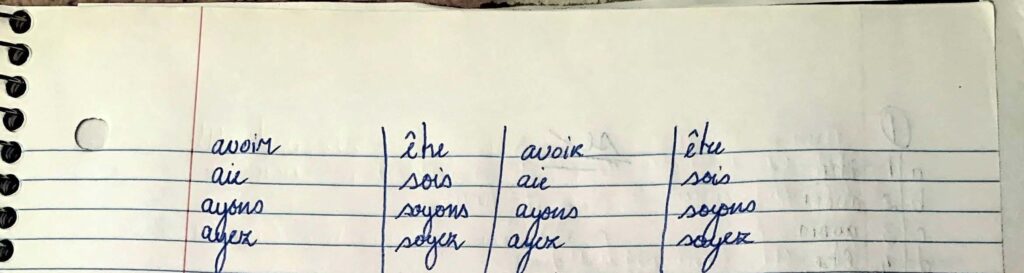 avoir être avoir être
aie sois aie sois
ayons soyons ayons soyons
ayez soyez ayez soyez